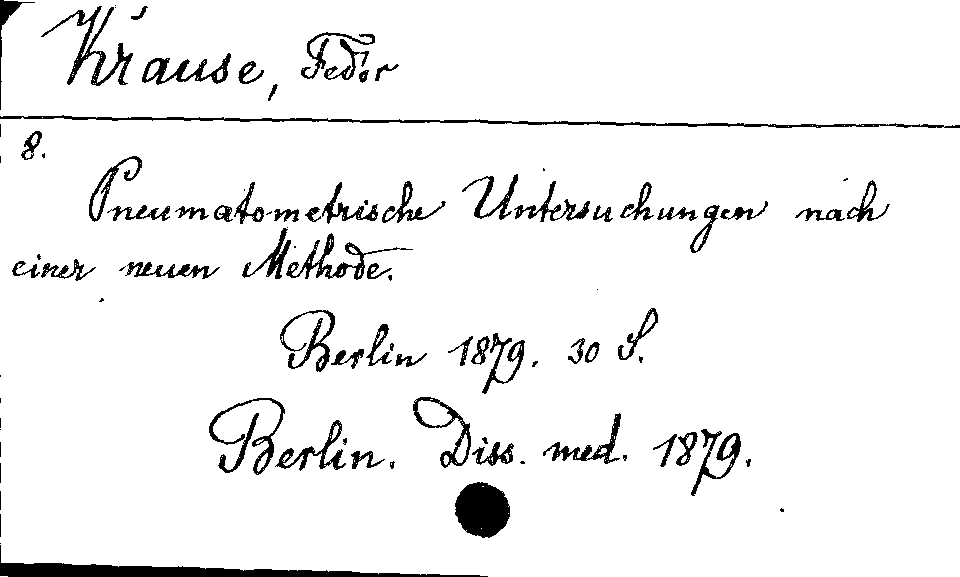 Krause, Fedor
8.
Pneumatometrische Untersuchungen nach
einer neuen Methode.
Berlin 1879. 30 S.
Berlin. Diss. med. 1879.